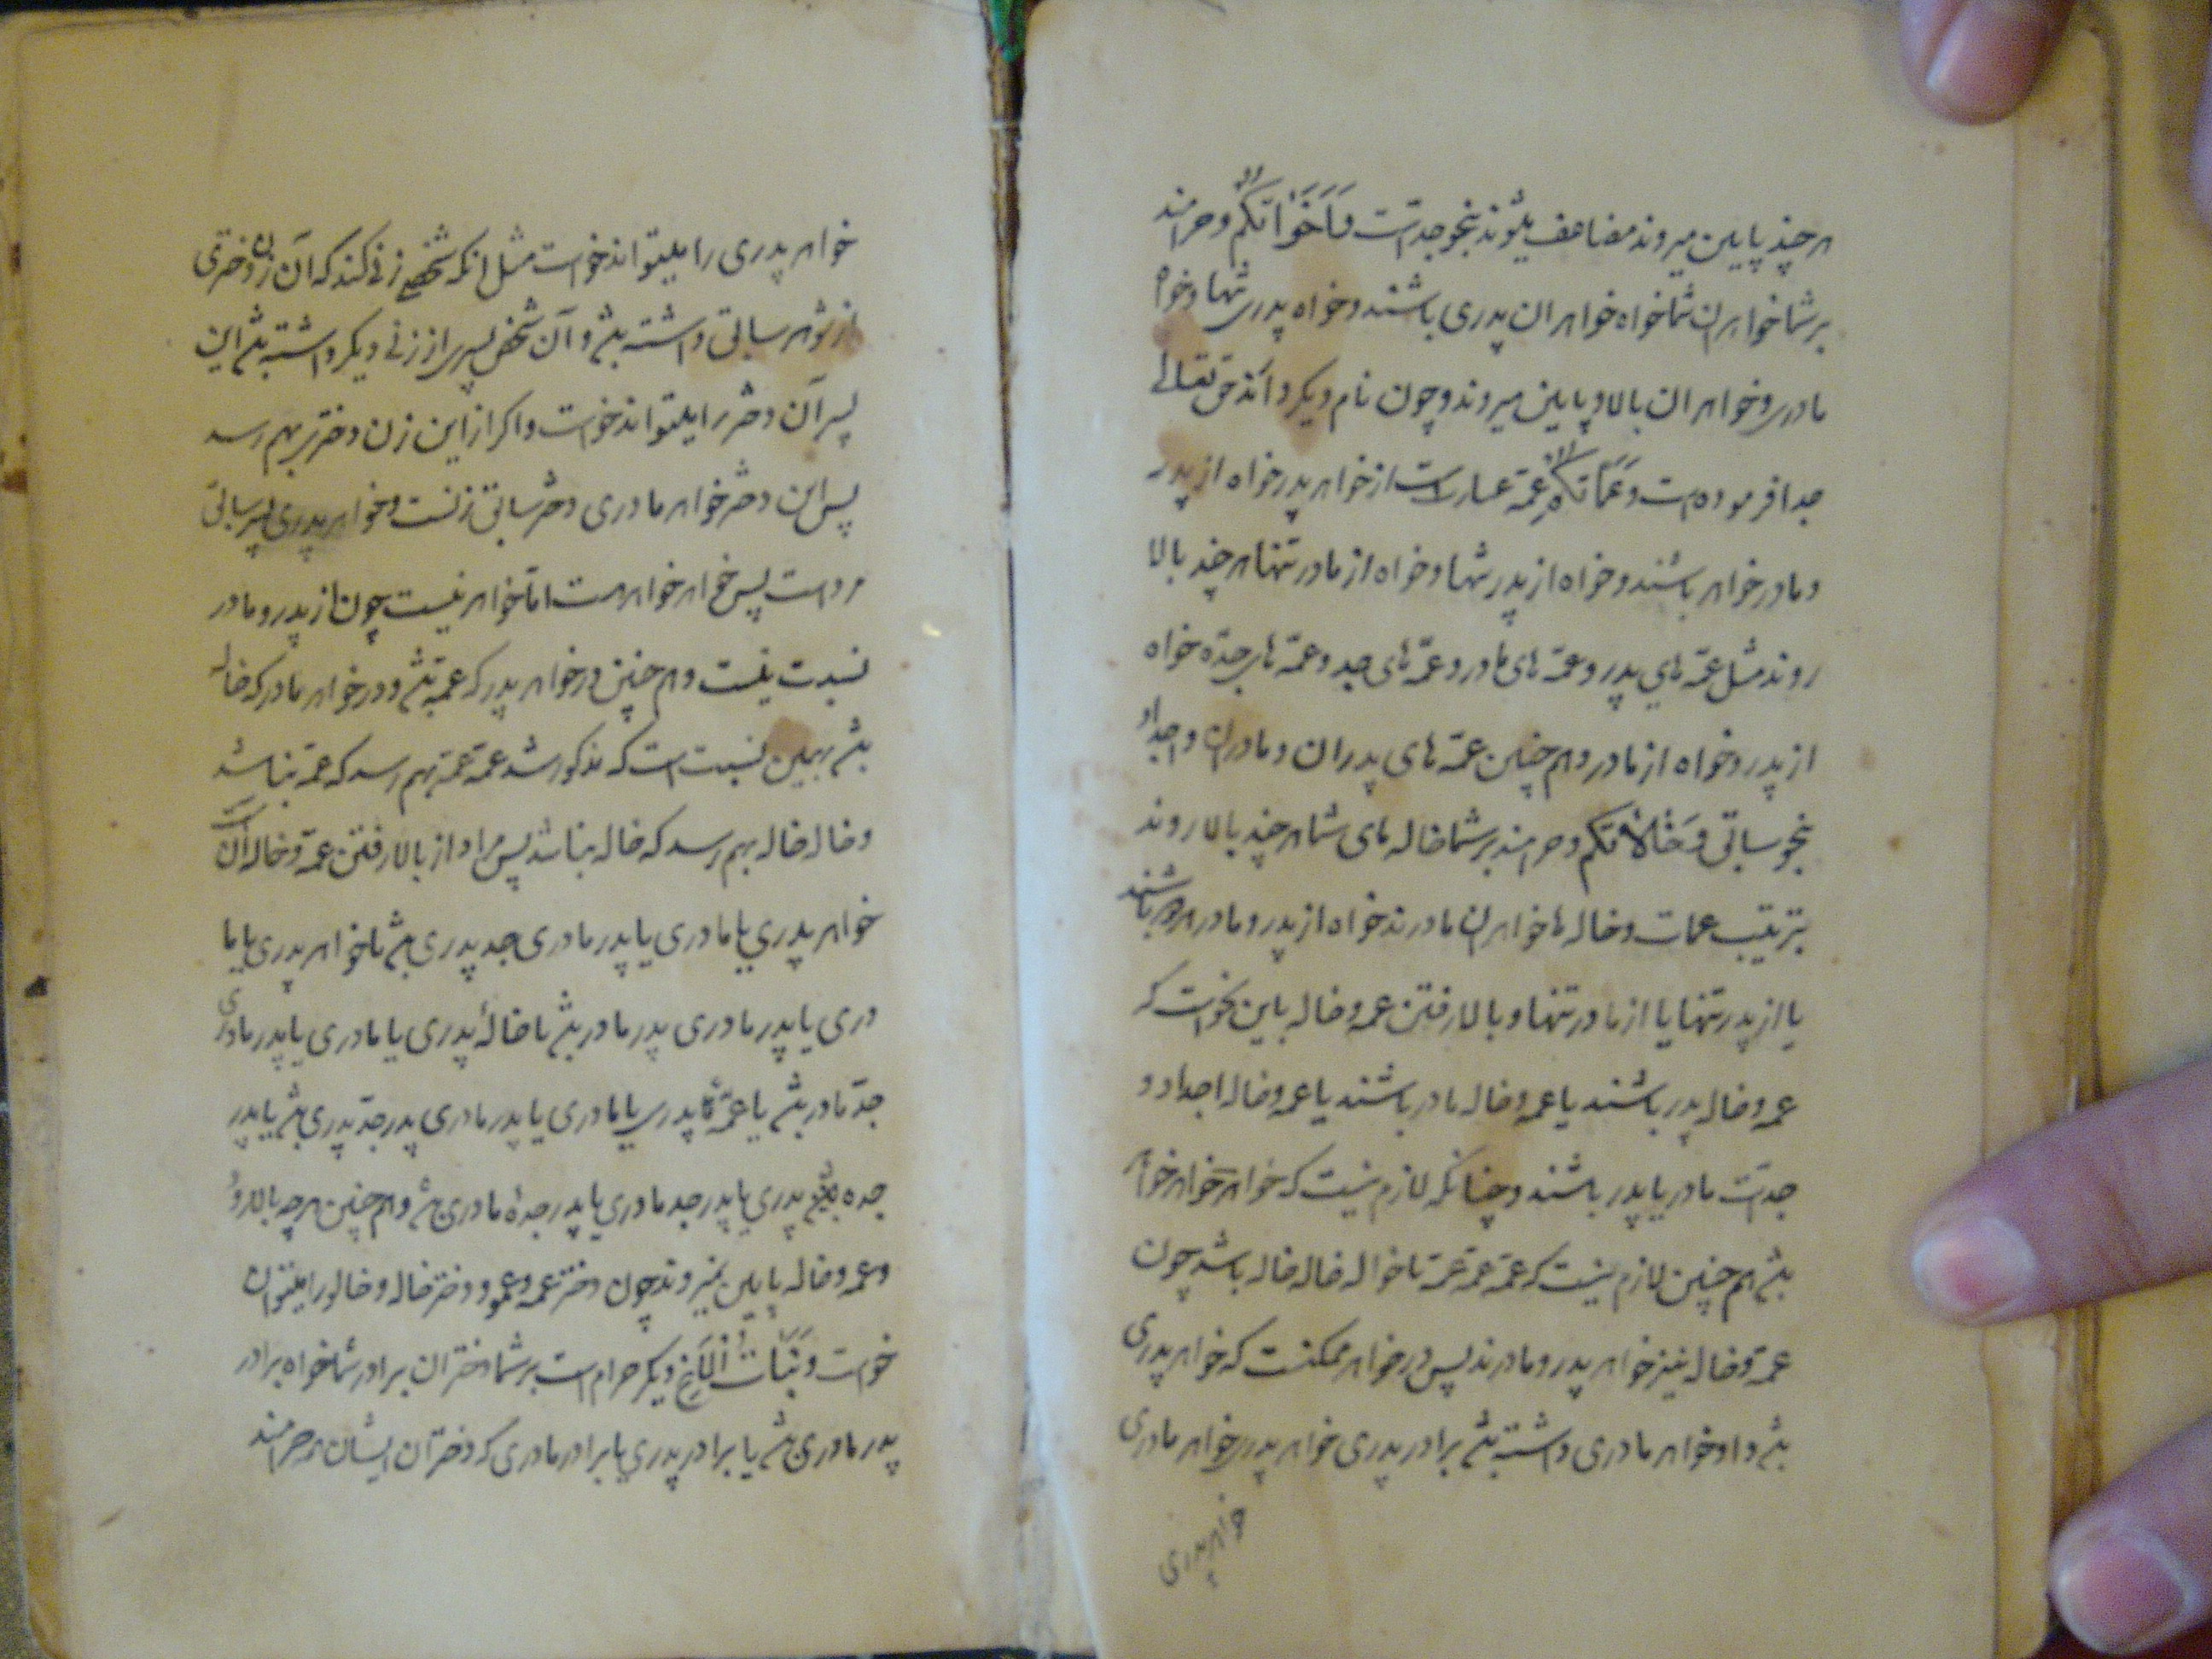 هر چند پایین میروند مضاعف میشوند بنحو جدات وَاَخَوٰاتُکُم و حرامند
بر شما خواهران شما خواه خواهران پدری باشند و خواه پدری تنها و خواه
مادری و خواهران بالا و پایین میروند و چون نام دیگر دارند حق تعالی
جدا فرموده است وَعَمّاتُکُم عمه عبارتست از خواهر پدر خواه از پدر
و مادر خواهر باشند و خواه از پدر تنها و خواه از مادر تنها هر چند بالا
روند مثل عمّه های پدر و عمّه های مادر و عمّه های جد و عمّه های جدّه خواه
از پدر و خواه از مادر و هم چنین عمّه های پدران و مادران و اجداد
بنحو سابق وَخٰالٰاتُکُم و حرامند بر شما خاله های شما هر چند بالا روند
بترتیب عمات و خاله ها خواهران مادرند خواه از پدر و مادر هر دو باشند
یا از پدر تنها یا از مادر تنها و بالا رفتن عمه و خاله باین نحو است که
عمه و خاله پدر باشند یا عمه و خاله مادر باشند یا عمه و خاله اجداد و
جدات مادر یا پدر باشند و چنانکه لازم نیست که خواهر خواهر خواهر
باشد هم چنین لازم نیست که عمّه عمّه عمّه یا خاله خاله خاله باشد چون
عمّه و خاله نیز خواهر پدر و مادرند پس در خواهر ممکنست که خواهر پدری
باشد و او خواهر مادری داشته باشد برادر پدری خواهر پدر خواهر مادری
خواهر پدری
خواهر پدری را میتواند خواست مثل آنکه شخصی زنی کند که آن زن دختری
از شوهر سابق داشته باشد و آن شخص پسری از زنی دیگر داشته باشد این
پسر آن دختر را میتواند خواست و اگر از این زن دختری بهم رسد
پس این دختر خواهر مادری دختر سابق زنست و خواهر پدری پسر سابق
مرد است پس خواهر خواهر هست اما خواهر نیست چون از پدر و مادر
نسبت نیست و هم چنین در خواهر پدر که عمه باشد و در خواهر مادر که خاله
باشد بهمین نسبت است که مذکور شد عمّه عمّه بهم رسد که عمّه نباشد
و خاله خاله بهم رسد که خاله نباشد پس مراد از بالا رفتن عمّه و خاله آنست
خواهر پدری یا مادری یا پدر مادری جد پدری باشد یا خواهر پدری یا ما
دری یا پدر مادری پدر مادر باشد یا خالهٔ پدری یا مادری یا پدر مادری
جدّ مادر باشد یا عمّهٔ پدری یا مادری یا پدر مادری پدر جدّ پدری باشد یا پدر
جده پدری یا پدر جد مادری یا پدر جدهٔ مادری باشد و هم چنین هر چه بالا رود
و عمه و خاله پایین نمیروند چون دختر عمه و عمو و دختر خاله و خالو را میتوان
خواست وَبَنٰاتُ الْاَخِ دیگر حرام است بر شما دختران برادر شما خواه برادر
پدر مادری باشد یا برادر پدری یا برادر مادری که دختران ایشان حرامند